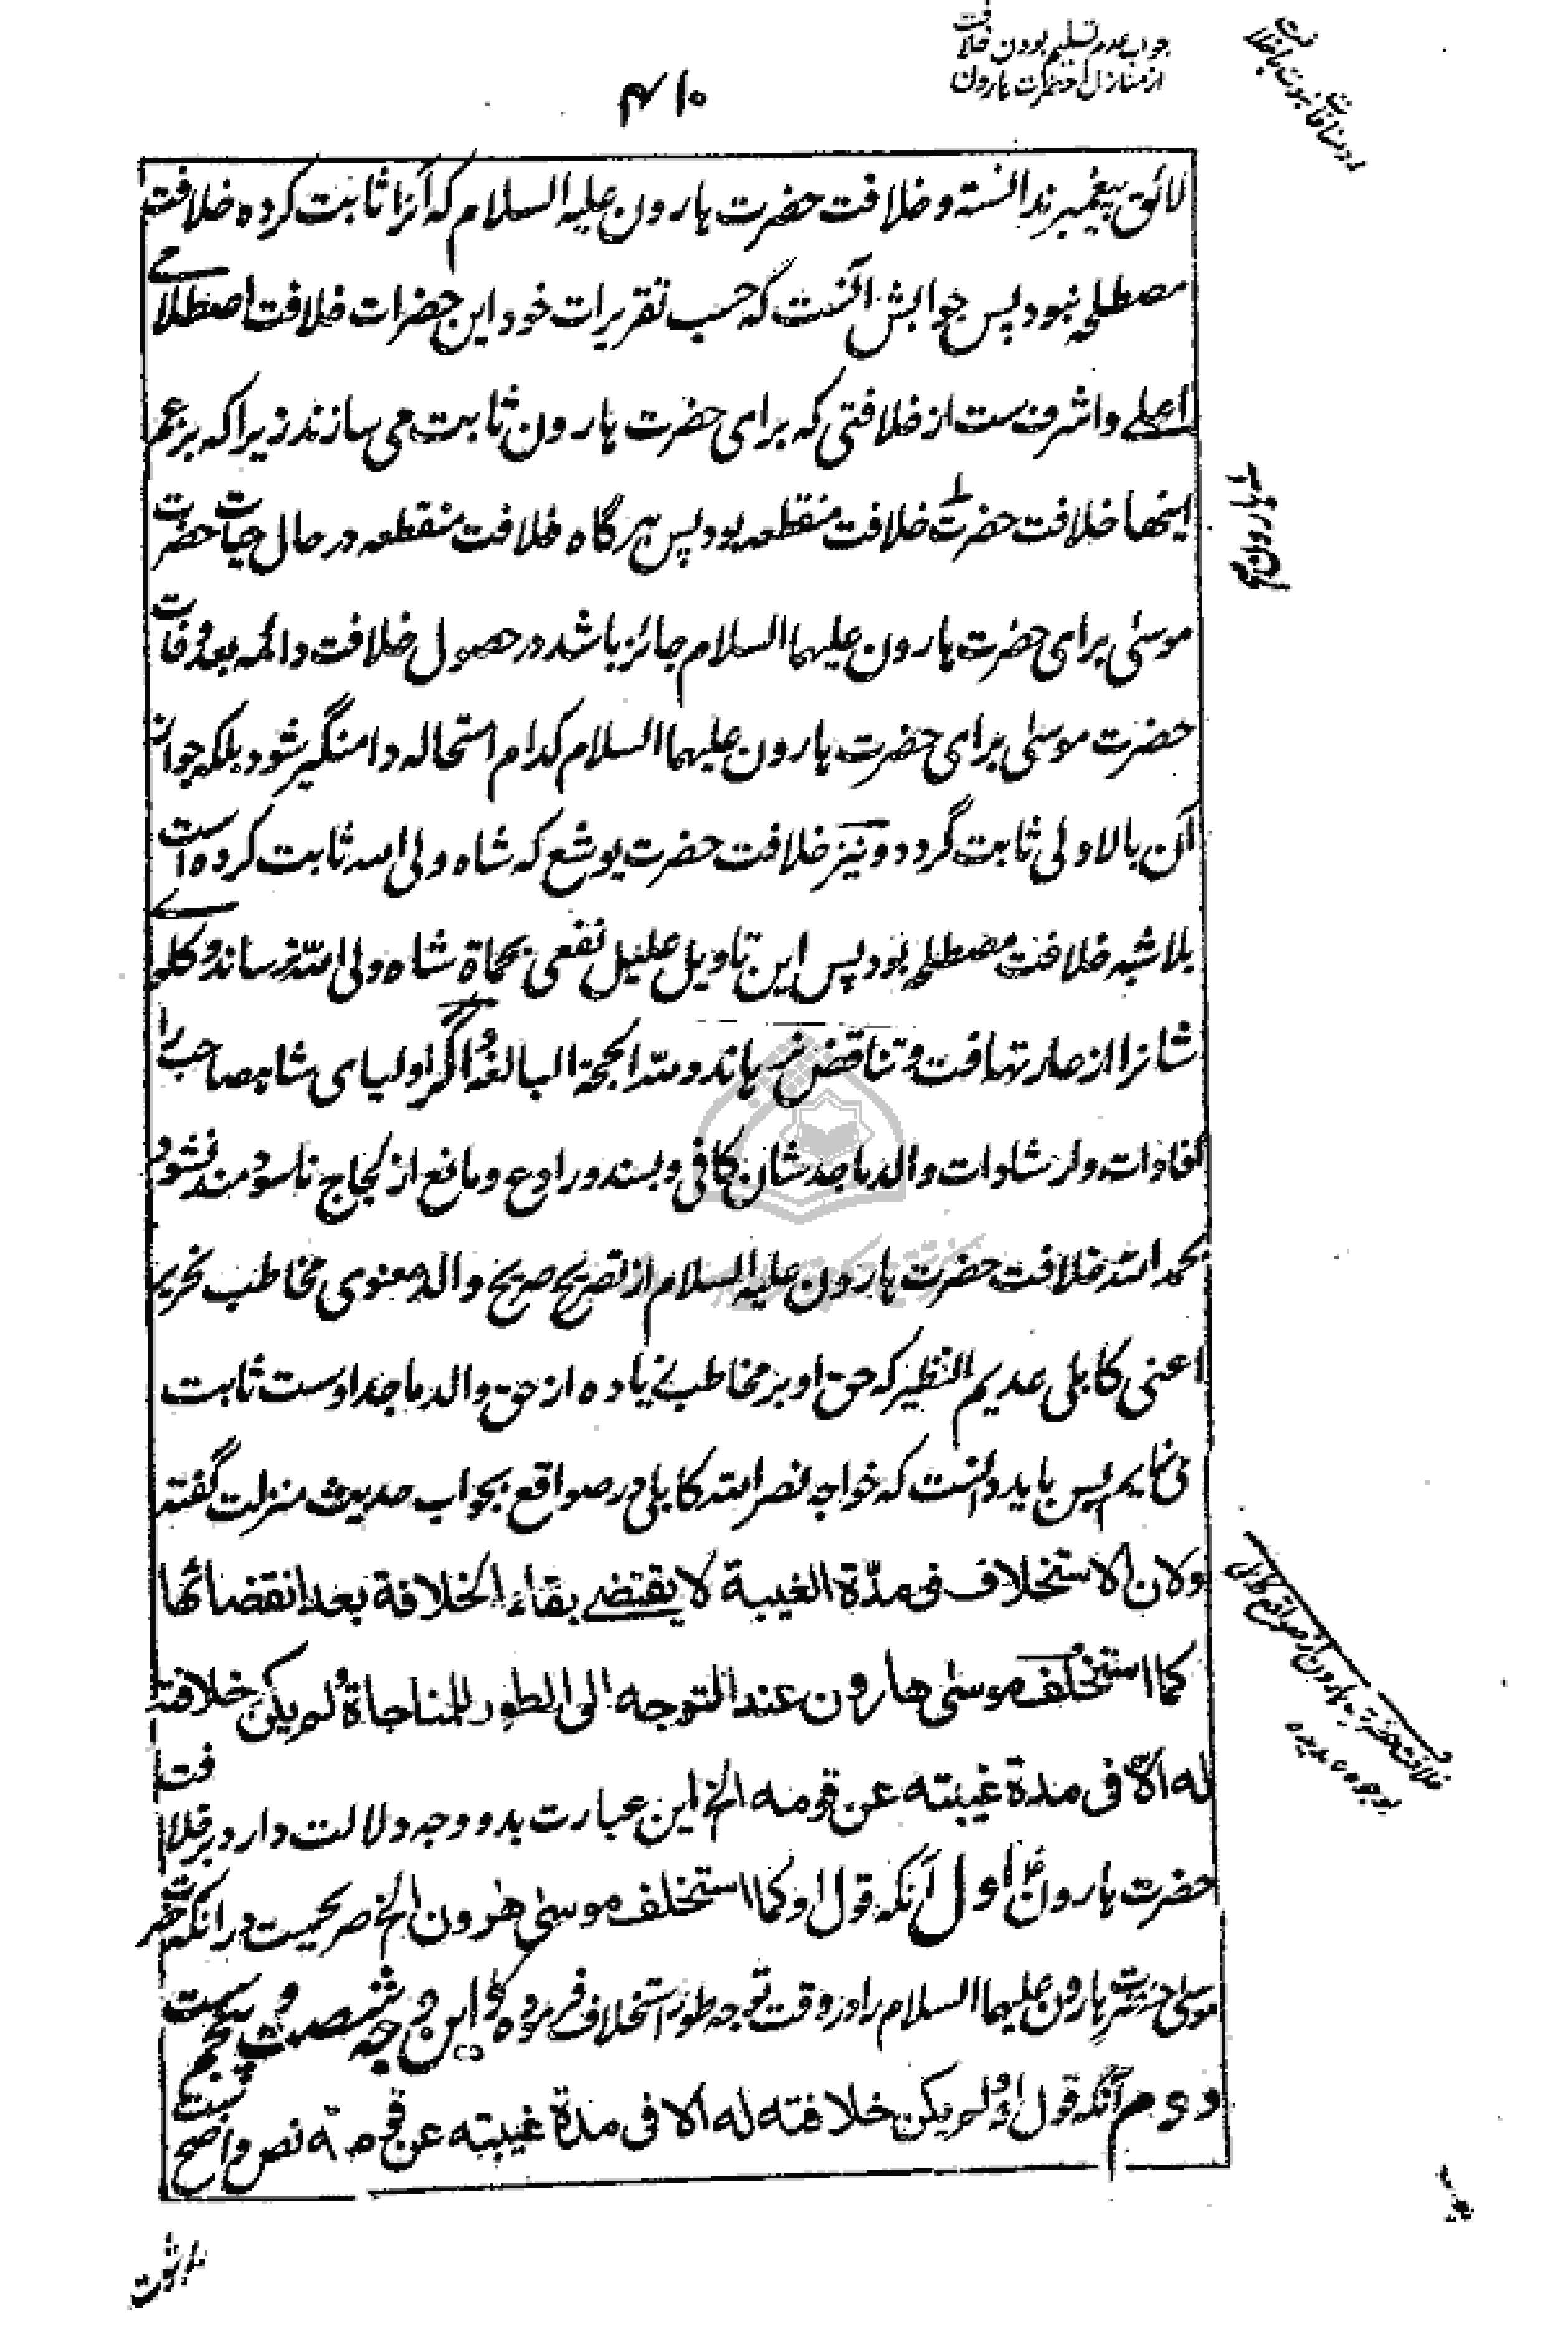 جواب عدم تسلیم بودن خلافت
از منازل حضرت هارون
۴۱۰
لائق پیغمبر ندانسته و خلافت حضرت هارون علیه السلام که آنرا ثابت کرده خلافت
مصطلحه نبود پس جوابش آنست که حسب تقریرات خود این حضرات خلافت اصطلاحے
اعلے و اشرف ست از خلافتی که برای حضرت هارون ثابت می سازند زیرا که بزعم
اینها خلافت حضرت خلافت منقطعه بود پس هرگاه خلافت منقطعه در حال حیات حضرت
موسیٰ برای حضرت هارون علیهما السلام جائز باشد در حصول خلافت دائمه بعد وفات
حضرت موسیٰ برای حضرت هارون علیهما السلام کدام استحاله دامنگیر شود بلکه جواز
آن بالاولی ثابت گردد و نیز خلافت حضرت یوشع که شاه ولی الله ثابت کرده است
بلا شبه خلافت مصطلحه بود پس این تاویل علیل نفعی بحماة شاه ولی الله نرساند و گلوے
شانرا از صار تهافت و تناقض نرهاند و لله الحجة البالغة و اگر اولیای شاهصاحب را
افادات و ارشادات والد ماجد شان کافی و بسند و رادع و مانع از لجاج ناسودمند نشود
بحمد الله خلافت حضرت هارون علیه السلام از تصریح صریح والد معنوی مخاطب نحریر
اعنی کابلی عدیم النظیر که حق او بر مخاطب زیاده از حق والد ماجد اوست ثابت
می نمایم پس باید دانست که خواجه نصر الله کابلی در صواقع بجواب حدیث منزلت گفته
ولان الاستخلاف فی مدّة الغیبة لا یقتضے بقاء الخلافة بعد انقضائها
کما استخلف موسیٰ هارون عند التوجه الی الطور للمناجاة ولم یکن خلافته
له الاّ فی مدة غیبته عن قومه الخ این عبارت بدو وجه دلالت دارد بر خلافت
حضرت هارون اول آنکه قول او کما استخلف موسیٰ هرون الخ صریحست در آنکه حضرت
موسیٰ حضرت هارون علیهما السلام را در وقت توجه طور استخلاف فرموده و این وجه شصت و پنجم ست
دوم آنکه قول او و لم یکن خلافته له الا فی مدة غیبته عن قومه نص واضح ست
خلافت حضرت هارون از صواقع کابلی
بوجوه عدیده
بر ثبوت